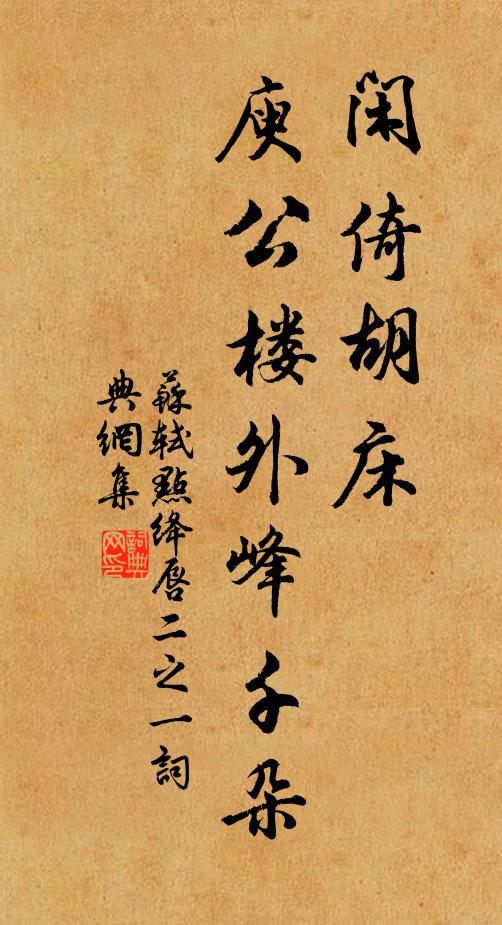 闲倚胡床
庾公楼外峰千朵
蘇軾點绛唇二之一詞
典網集
詞典网印